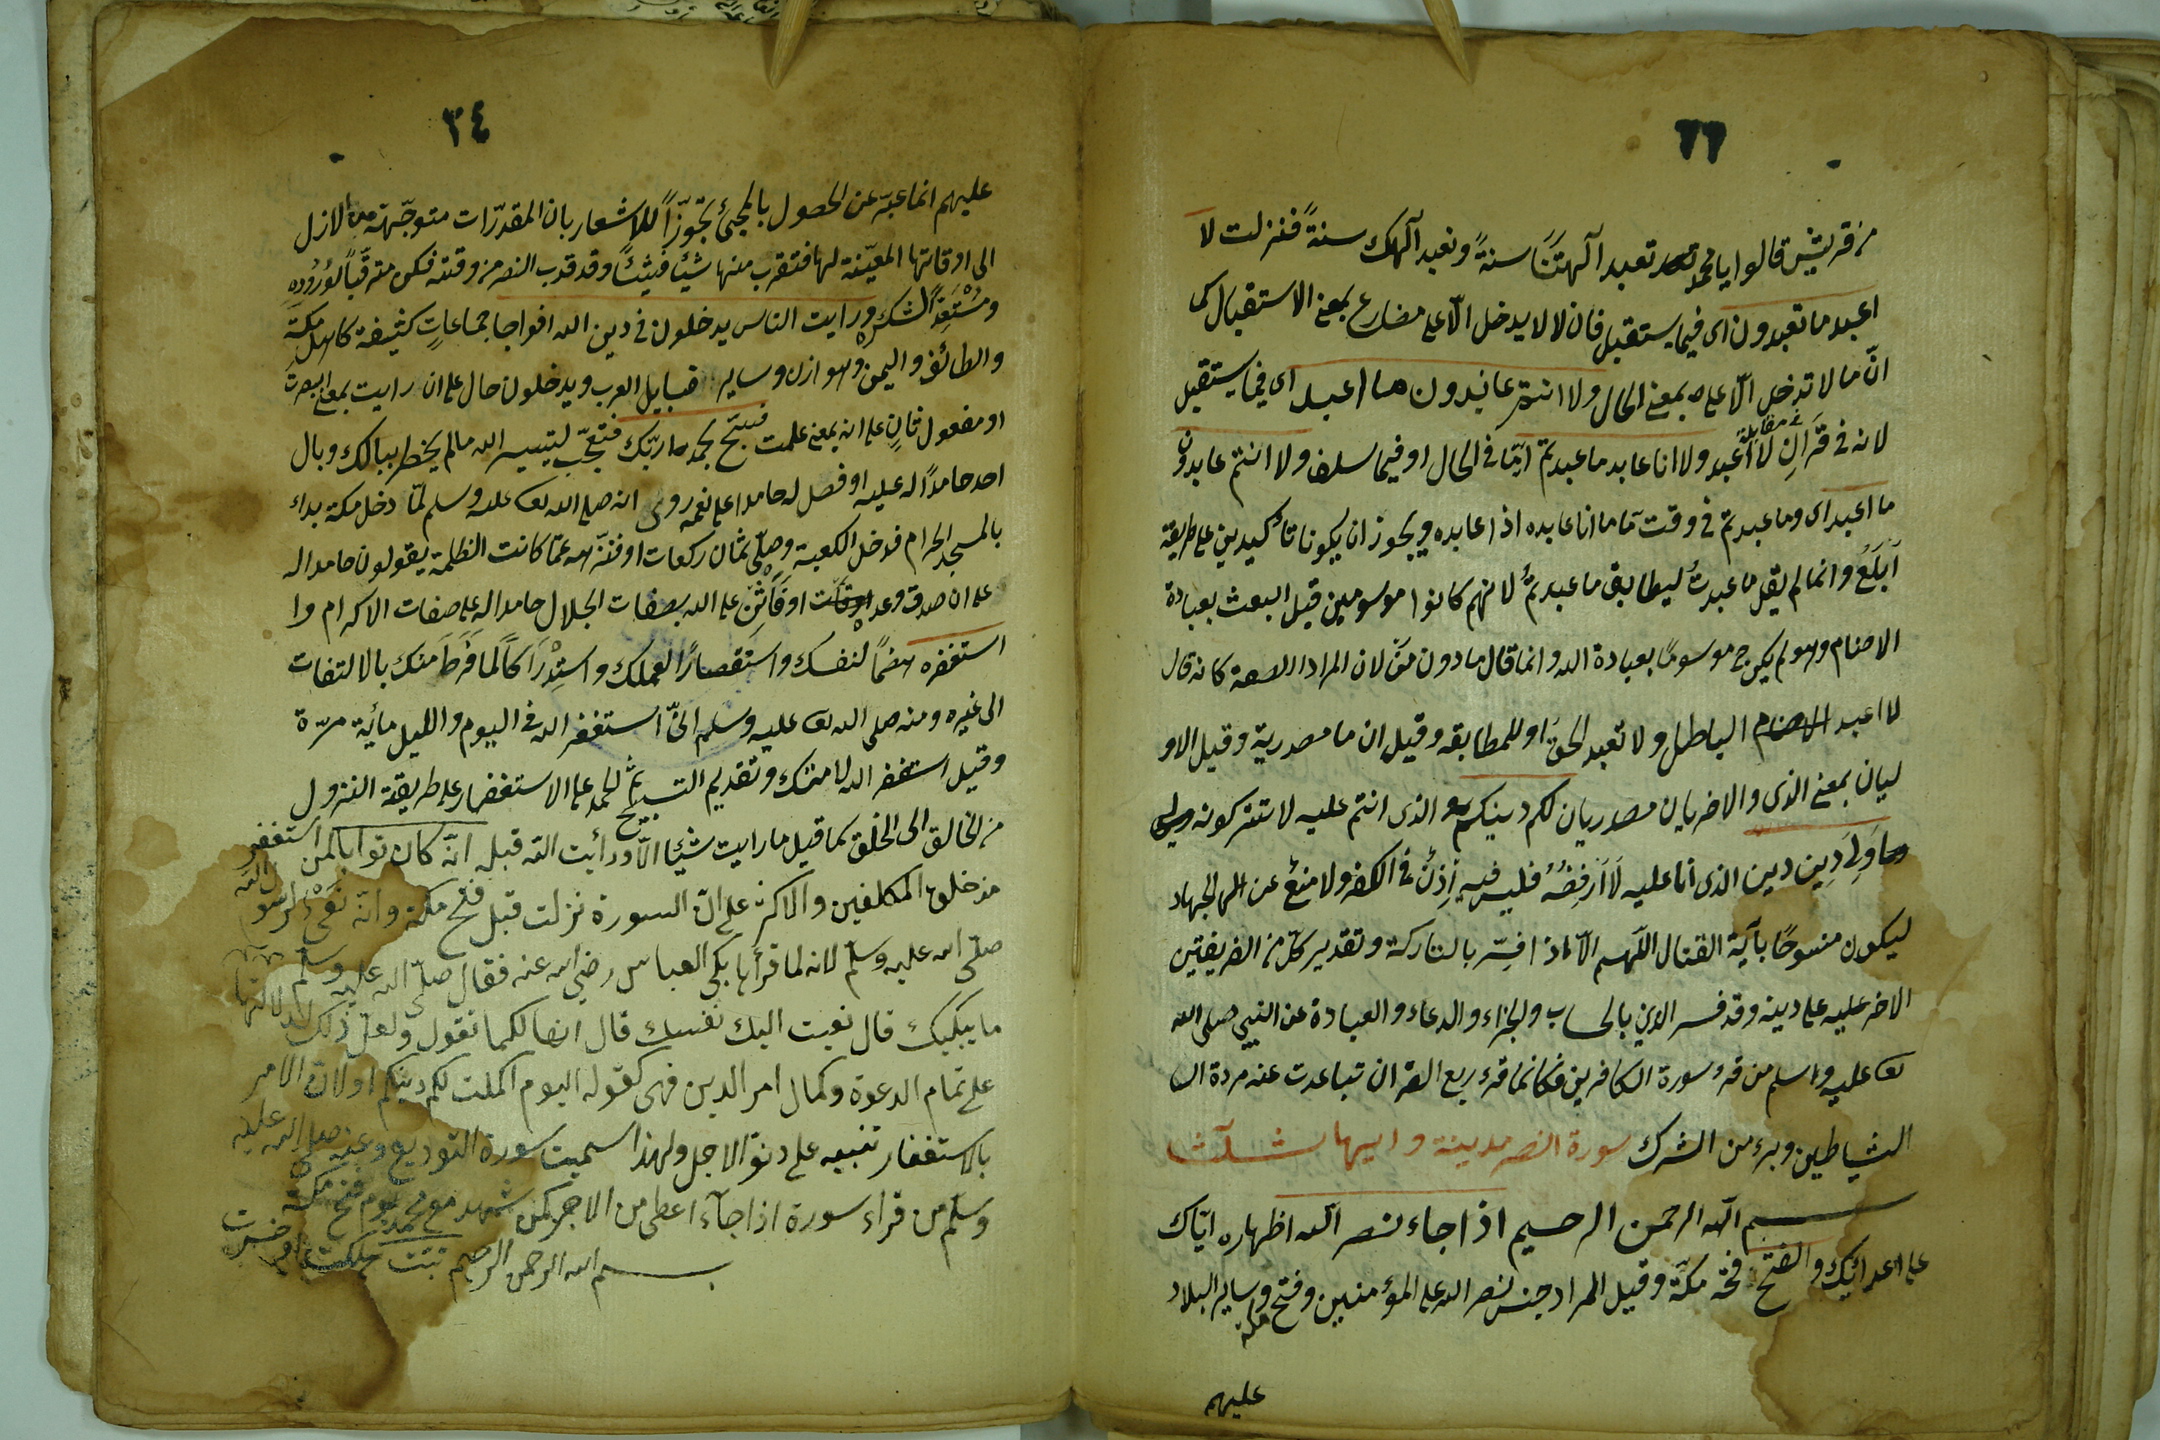 ٦٦
من قريش قالوا يا محمد تعبد آلهتنا سنةً ونعبد آلهك سنةً فنزلت لا
اعبد ما تعبدون اى فيما يستقبل فان لا لا يدخل الّا على مضارع بمعنى الاستقبال كما
انّ ما لا تدخل الّا عليه بمعنى الحال ولا انتم عابدون ما اعبد اى فيما يستقبل
لانه فى قران لا اعبد ولا انا عابد ما عبدتم اى فى الحال او فيما سلف ولا انتم عابدون
ما اعبد اى وما عبدتم فى وقت مّا ما انا عابده اذا عابده ويجوز ان يكونا تاكيدين على طريقة
ابلغ وانما لم يقل ما عبدتُ ليطابق ما عبدتم لانهم كانوا موسومين قبل البعث بعبادة
الاصنام وهو لم يكن ح موسومًا بعبادة الله وانما قال ما دون مَن لان المراد الصفة كانه قال
لا اعبد الباطل ولا تعبد الحق او للمطابقه وقيل ان ما مصدرية وقيل الاو
ليان بمعنى الذى والاخريان مصدريان لكم دينكم الذى انتم عليه لا تتركونه
وَلِىَ دِين دين الذى انا عليه لا ارفضُهُ فليس فيه اِذنٌ فى الكفر ولا منعٌ عن الجهاد
ليكون منسوخًا بآية القتال اللهم الّا اذا فسّر بالمتاركة وتقدير كلّ من الفريقين
الاخر عليه على دينه وقد فسر الدين بالحساب والجزاء والدعاء والعبادة عن النبي صلى الله
تع عليه وسلم من قرء سورة الكافرين فكانما قرء ربع القران تباعدت عنه مردة ال
الشياطين وبرء من الشرك سورة النصر مدينة وايها ثلاث
بسم الله الرحمن الرحيم اذا جاء نصر الله اظهاره اياك
على اعدائيك والفتح فتح مكّة وقيل المراد جنس نصر الله على المؤمنين وفتح مكة وساير البلاد
عليهم
٣٤
عليهم انما عبّر عن الحصول بالمجئ تجوّزاً للاشعار بان المقدرّات متوجّهة من الازل
الى اوقاتها المعيّنة لها فتقرب منها شيئا فشيئًا وقد قرب النصر من وقته فكن مترقّباً لوُرُودِهِ
ومُسْتَعِدًّا لشكره ورايت الناس يدخلون فى دين الله افواجا جماعاتٍ كثيفة كاهل مكّة
والطائف واليمن وهوازن وساير قبايل العرب ويدخلون حال على ان رايت بمعنى ابصرتَ
او مفعول ثانٍ على انه بمعنى علمت فسبّح بحمد ربّك فتعجّب لتيسير الله ما لم يخطر ببالك وبال
احد حامدًا له عليه او فصل له حامدا على نعمه روى انه صلى الله تع عليه وسلم لمّا دخل مكة بداء
بالمسجد الحرام فدخل الكعبة وصلّى ثمان ركعات او فنزّهه عمّا كانت الظلمة يقولون حامدا له
على ان صدق وعده او فَاَثنِ على الله بصفات الجلال حامدا له على صفات الاكرام وا
استغفره هضمًا لنفسك واستقصارًا لعملك واستِدْرَاكًا لما فَرَطَ منك بالالتفات
الى غيره ومنه صلى الله تع عليه وسلم انىّ استغفر الله فى اليوم والليل مأية مرّة
وقيل استغفر الله لامتك وتقديم التسبيح ثم الحمد على الاستغفار على طريقة النزول
من الخالق الى الخلق كما قيل ما رايت شيئا الّا ورأيت الله قبله انّه كان توابا لمن استغفر
مذ خلق المكلفين والاكثر على انّ السورة نزلت قبل فتح مكة وانّه نَعْىٌ لرسول الله
صلّى الله عليه وسلّم لانه لما قرأها بكى العباس رضى الله عنه فقال صلّى الله عليه وسلّم
ما يبكيك قال نعيت اليك نفسك قال انها لكما تقول ولعل ذلك لدلالتها
على تمام الدعوة وكمال امر الدين فهى كقوله اليوم اكملت لكم دينكم او لانّ الامر
بالاستغفار تنبيه على دنوّ الاجل ولهذا سميت سورة التوديع وعنه صلى الله عليه
وسلّم من قراء سورة اذا جاء اعطى من الاجر كمن شهد مع محمد يوم فتح مكة
بسم الله الرحمن الرحيم تبّت هلكت او خسرت